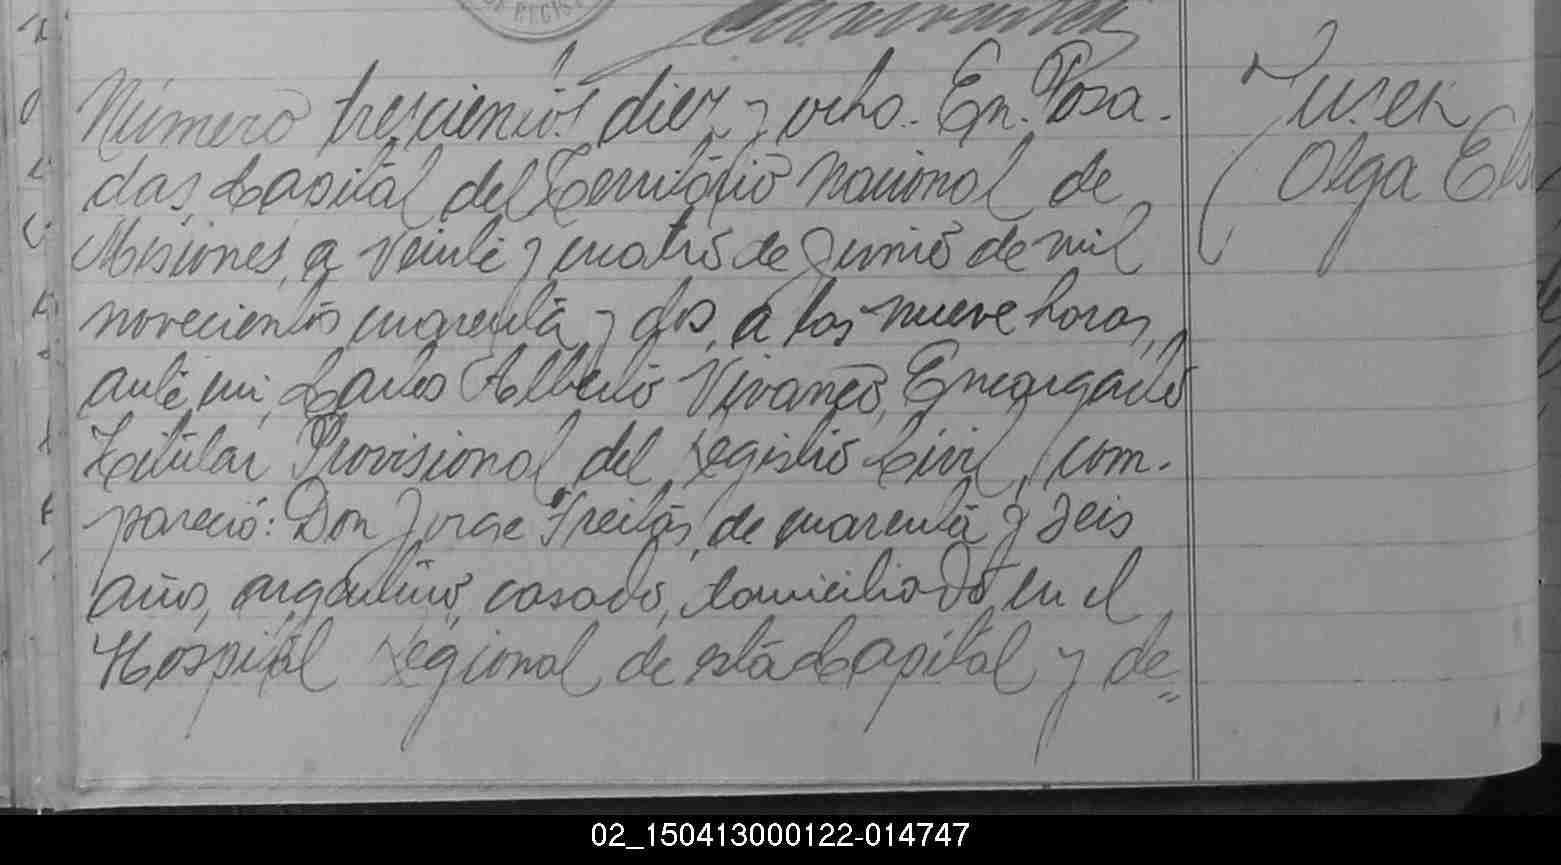 DE REGIST
Número trescientos diez y ocho. En Posa-
das, Capital del Territorio Nacional de
Misiones, a veinte y cuatro de Junio de mil
novecientos cuarenta y dos, a las nueve horas,
ante mi, Carlos Alberto Vivanco, Encargado
Titular Provisional del Registro Civil, com-
pareció: Don Jorge Freitas, de cuarenta y seis
años, argentino, casado, domiciliado en el
Hospital Regional de esta Capital y de=
Olga
02_150413000122-014747